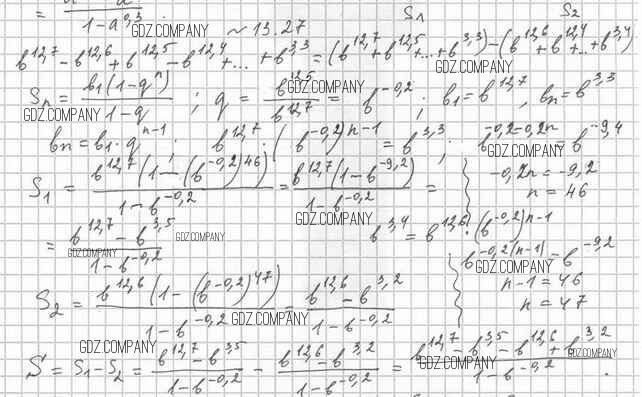 = 1-a^0,3 . ~ 13.27 S1 S2
b^12,7 - b^12,6 + b^12,5 - b^12,4 + ... + b^3,3 = (b^12,7 + b^12,5 + ... + b^3,3) - (b^12,6 + b^12,4 + ... + b^3,4)
Sn = b1(1-q^n) / 1-q ; q = b^12,5 / b^12,7 = b^-0,2 ; b1 = b^12,7 , bn = b^3,3
bn = b1·q^n-1 ; b^12,7 · (b^-0,2)^n-1 = b^3,3 ; b^-0,2-0,2n = b^-9,4
S1 = b^12,7(1-(b^-0,2)^46) / 1-b^-0,2 = b^12,7(1-b^-9,2) / 1-b^-0,2 =
-0,2n = -9,2
n = 46
= b^12,7 - b^3,5 / 1-b^-0,2
b^3,4 = b^12,6 · (b^-0,2)^n-1
b^-0,2(n-1) = b^-9,2
n-1 = 46
n = 47
S2 = b^12,6(1-(b^-0,2)^47) / 1-b^-0,2 = b^12,6 - b^3,2 / 1-b^-0,2
S = S1-S2 = b^12,7 - b^3,5 / 1-b^-0,2 - b^12,6 - b^3,2 / 1-b^-0,2 = b^12,7 - b^3,5 - b^12,6 + b^3,2 / 1-b^-0,2 .
GDZ.COMPANY
GDZ.COMPANY
GDZ.COMPANY
GDZ.COMPANY
GDZ.COMPANY
GDZ.COMPANY
GDZ.COMPANY
GDZ.COMPANY
GDZ.COMPANY
GDZ.COMPANY
GDZ.COMPANY
GDZ.COMPANY
GDZ.COMPANY